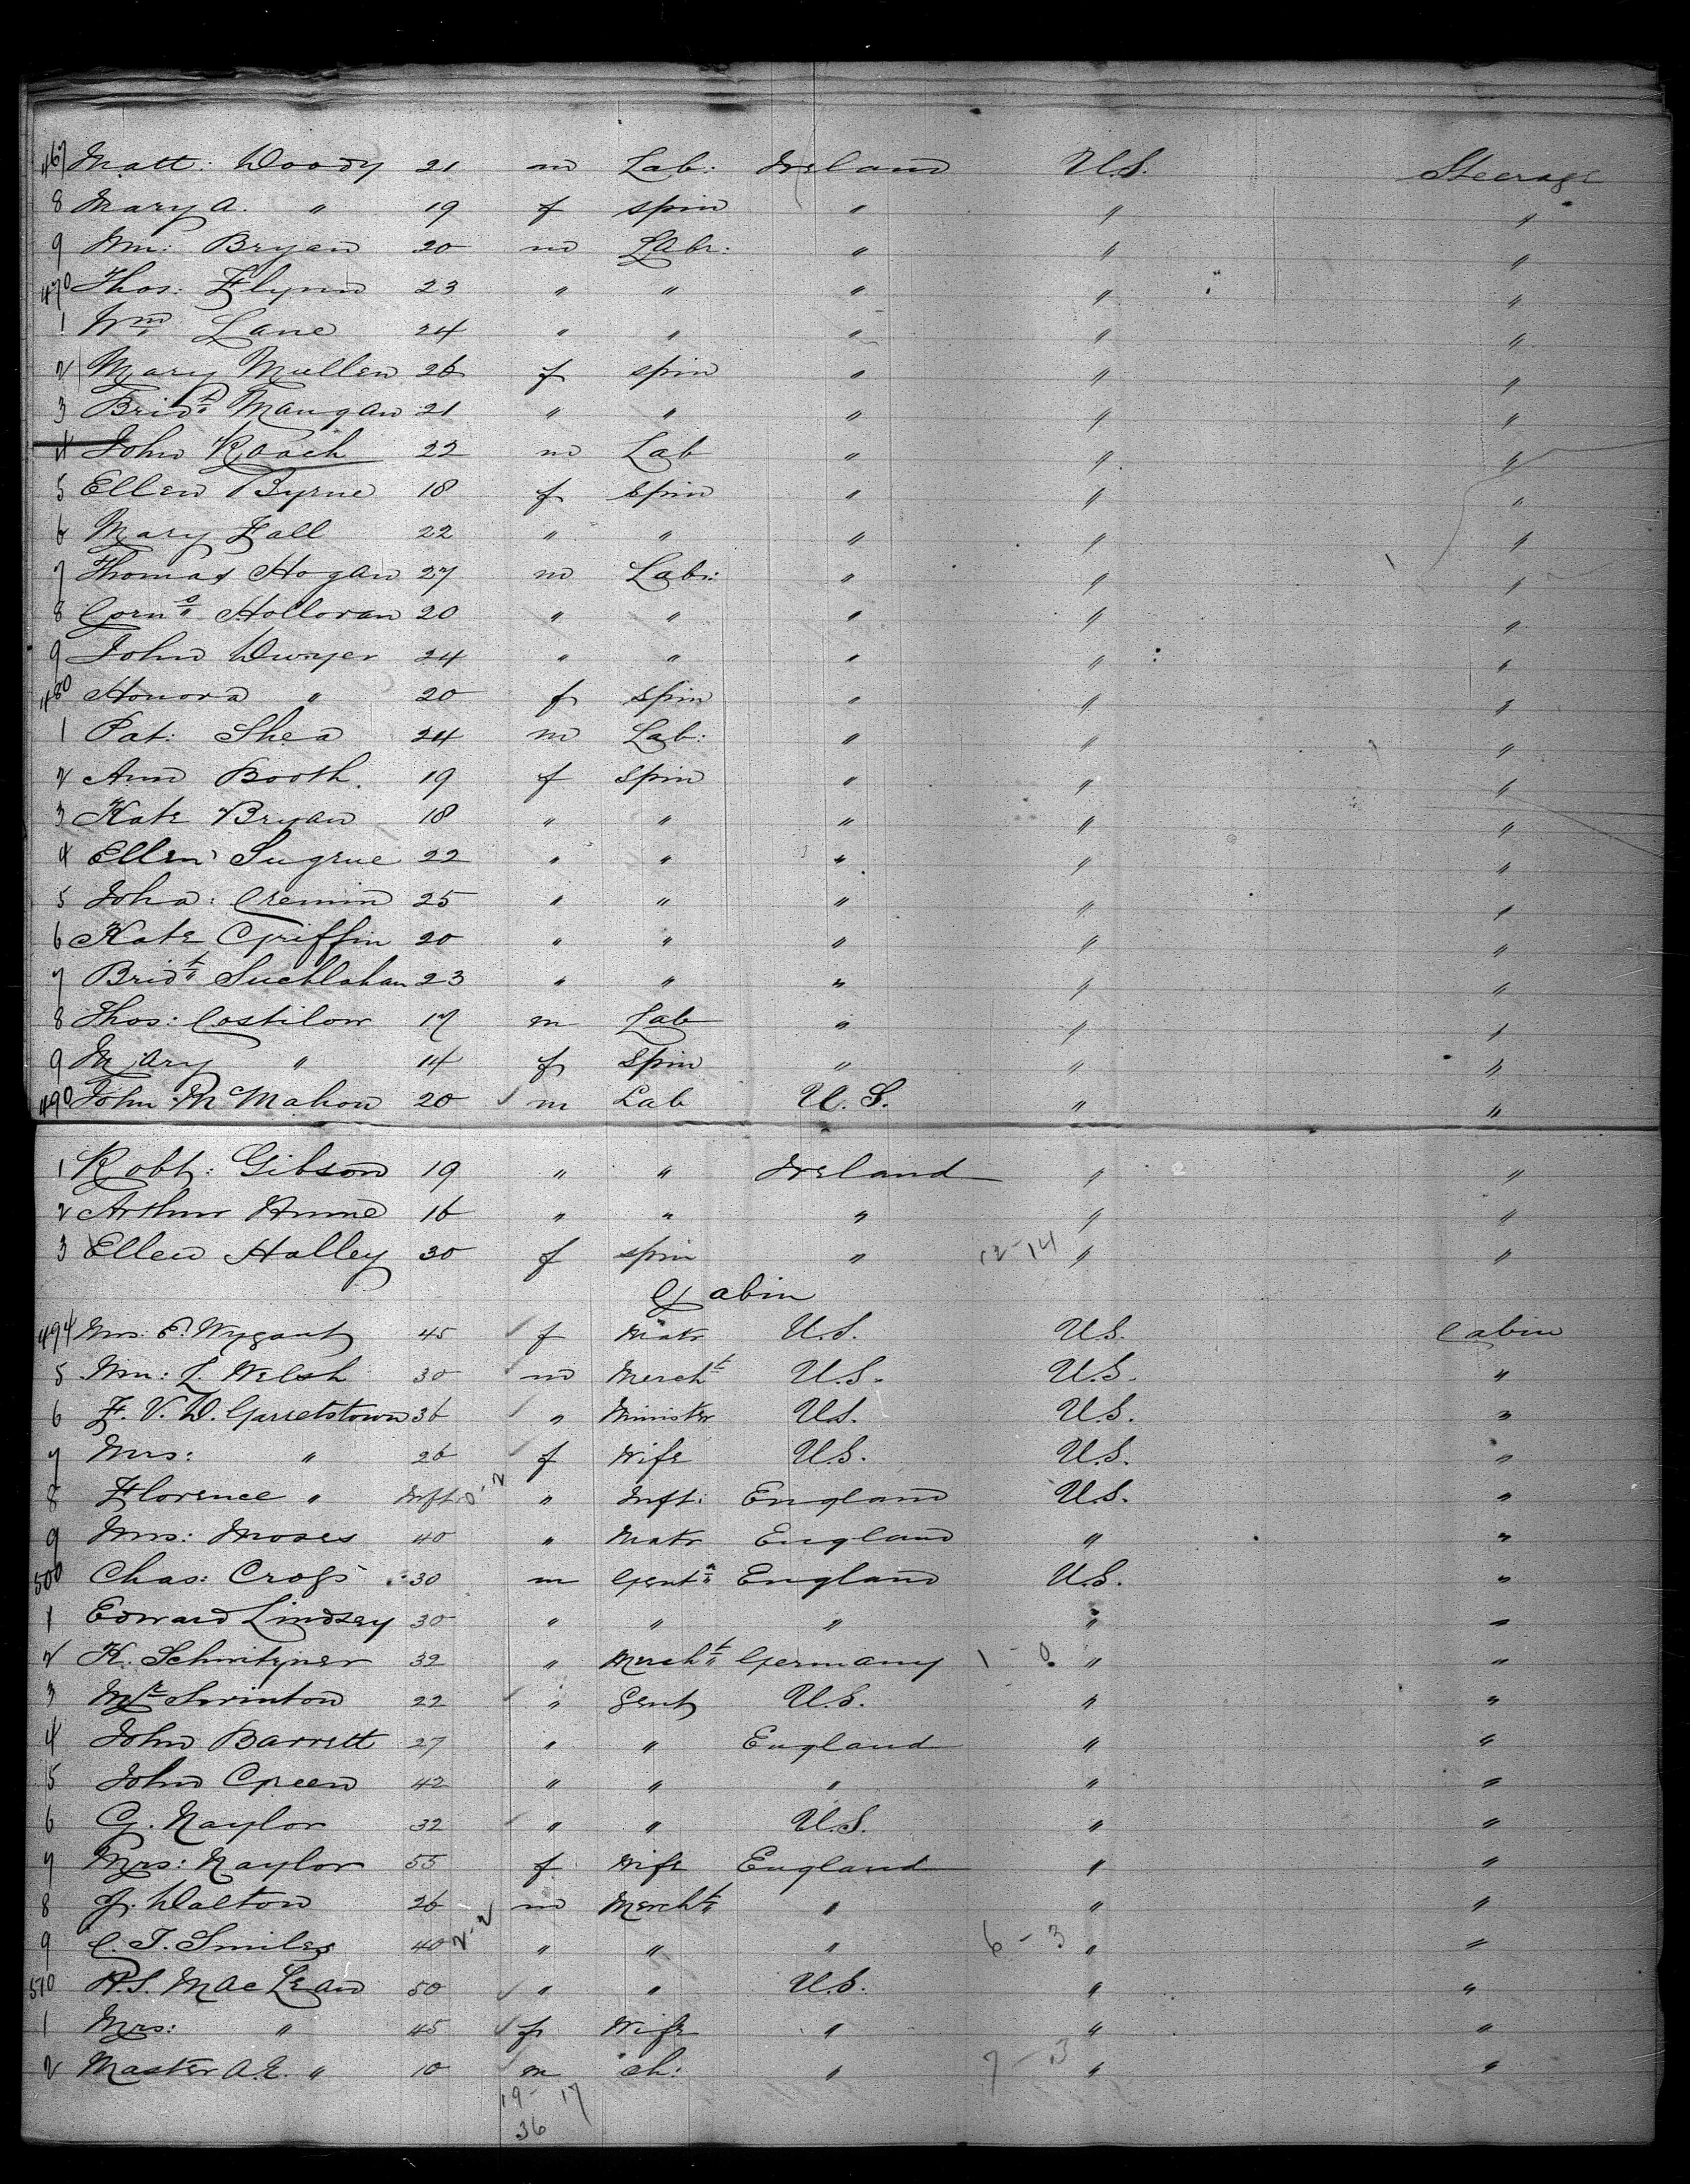 467 Matt: Doody 21 m Lab: Ireland U.S. Steerage
8 Mary A. " 19 f spin " " "
9 Wm: Bryan 20 m Labr: " " "
470 Thos: Flynn 23 " " " " "
1 Wm Lane 24 " " " " "
2 Mary Mullen 26 f spin " " "
3 Bridt Mangan 21 " " " " "
4 John Roach 22 m Lab " " "
5 Ellen Byrne 18 f spin " " "
6 Mary Fall 22 " " " " "
7 Thomas Hogan 27 m Labr: " " "
8 Corns Holloran 20 " " " " "
9 John Dwyer 24 " " " " "
480 Honora " 20 f spin " " "
1 Pat: Shea 24 m Lab: " " "
2 Ann Booth. 19 f spin " " "
3 Kate Bryan 18 " " " " "
4 Ellen Sugrue 22 " " " " "
5 Joha: Cremin 25 " " " " "
6 Kate Griffin 20 " " " " "
7 Bridt 23 " " " " "
8 Thos: Costilow 17 m Lab " " "
9 Mary " 14 f spin " " "
490 John McMahon 20 m Lab U.S. " "
1 Robt: Gibson 19 " " Ireland " "
2 Arthur 16 " " " " "
3 Ellen Halley 30 f spin " 12-14 " "
Cabin
494 Mrs. E. Wygant 45 f Matr U.S. U.S. Cabin
5 Wm: L. Welsh 30 m Mercht U.S. U.S. "
6 F. V. D. Garretstown 36 " Minister U.S. U.S. "
7 Mrs: " 26 f Wife U.S. U.S. "
8 Florence " Inft 0-2 " Inft: England U.S. "
9 Mrs: Moses 40 " Matr England " "
500 Chas: Cross 30 m Gentn England U.S. "
1 Edward Lindsey 30 " " " " "
2 K. Schnitzner 32 " Mercht Germany 1-0 " "
3 Mr Swinton 22 " Gent U.S. " "
4 John Barrett 27 " " England " "
5 John Green 42 " " " " "
6 G. Naylor 32 " " U.S. " "
7 Mrs: Naylor 55 f Wife England " "
8 J. Dalton 26 m Mercht " " "
9 C. T. Smiles 40 2-2 " " " 6-3 " "
510 R.S. MacLean 50 " " U.S. " "
1 Mrs: " 45 f Wife " " "
2 Master A.E. " 10 m ch: " 7-3 " "
19-17
36